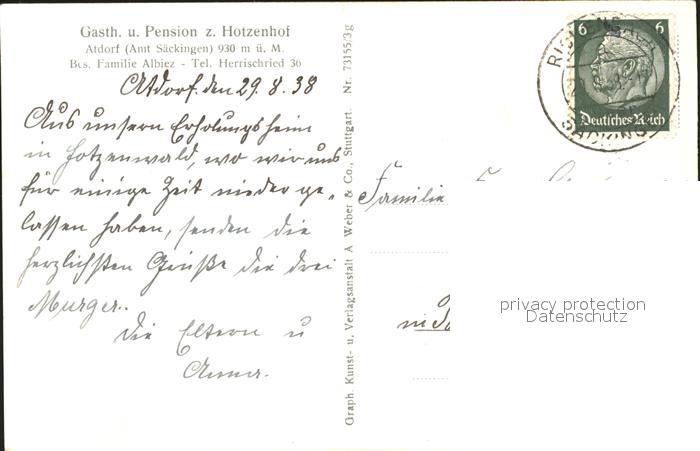 Gasth. u. Pension z. Hotzenhof
Atdorf (Amt Säckingen) 930 m ü. M.
Bes. Familie Albiez - Tel. Herrischried 36
Atdorf. den 29. 8. 38
Aus unserm Erholungsheim
in Hotzenwald, wo wir uns
für einige Zeit nieder ge„
lassen haben, senden die
herzlichsten Grüße die drei
Murger..
Die Eltern u
Anna.
Graph. Kunst- u. Verlagsanstalt A Weber & Co., Stuttgart. Nr. 73155/3g
6 6
Deutsches Reich
SÄCKINGEN
Familie
privacy protection
Datenschutz